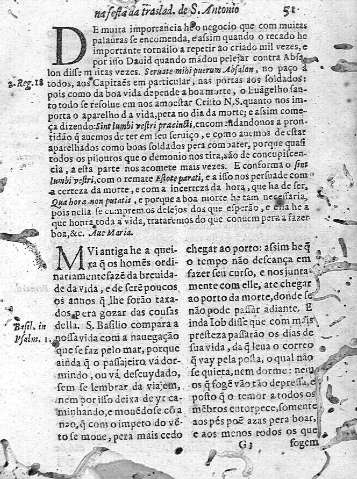 na festa da traslad. de S. Antonio 51
DE muita importancia he o negocio que com muitas
palauras se encomenda, e assim quando o recado he
importante tornaõlo a repetir ao criado mil vezes, e
por isso Dauid quando mãdou pelejar contra Absa
2. Reg. 18
lon disse muitas vezes. Seruate mihi puerum Absalon, no paço à
todos, aos Capitaẽs em particular, nas portas aos soldados:
pois como da boa vida depende a boa morte, o Euagelho san-
to todo se resolue em nos amoestar Cristo N.S. quanto nos im
porta o aparelho da vida, pera no dia da morte; e assim come
ça dizendo: Sint lumbi vestri præcincti, encomẽdandonos a pron-
tidão q̃ auemos de ter em seu seruiço, e como auemos de estar
aparelhados como bons soldados pera combater, porque quasi
todos os pilouros que o demonio nos tira, são de concupiscen-
cia, a esta parte nos acomete mais vezes. E conforma o sint
lumbi vestri, com o remate Estote parati, e a isso nos persuade com
a certeza da morte, e com a incerteza da hora, que ha de ser,
Qua hora non putatis, e porque a boa morte he tam necessaria,
pois nella se cumprem os desejos dos que esperão, e ella he a
que honra toda a vida, trataremos do que conuem pera a fazer
boa, &c. Aue Maria.
MVi antiga he a quei-
xa q̃ os homẽs ordi-
nariamente fazẽ da breuida-
de da vida, e de serẽ poucos
os annos q̃ lhe sorão taxa-
dos, pera gozar das cousas
Basil. in
della. S. Basilio compara a
Psalm. 1.
nossa vida com a nauegação
que se faz pelo mar, porque
ainda q̃ o passageiro vá dor-
mindo, ou vá descuydado,
sem se lembrar da viajem,
nem por isso deixa de yr ca-
minhando, e mouẽdose cõ a
nao, q̃ com o impeto do vẽ-
to se moue, pera mais cedo
chegar ao porto: assim he q̃
o tempo não descança em
fazer seu curso, e nos junta-
mente com elle, ate chegar
ao porto da morte, donde se
não pode passar adiante. E
inda Iob disse que com mais
presteza passarão os dias de
sua vida, dâ q̃ leua o correo
q̃ vay pela posta, o qual não
se quieta, nem dorme: nem
os q̃ fogẽ vão tão depressa, e
posto q̃ o temor a todos os
mẽbros entorpece, somente
aos pès poẽ azas pera boar,
e aos menos todos os que
G 3 fogem